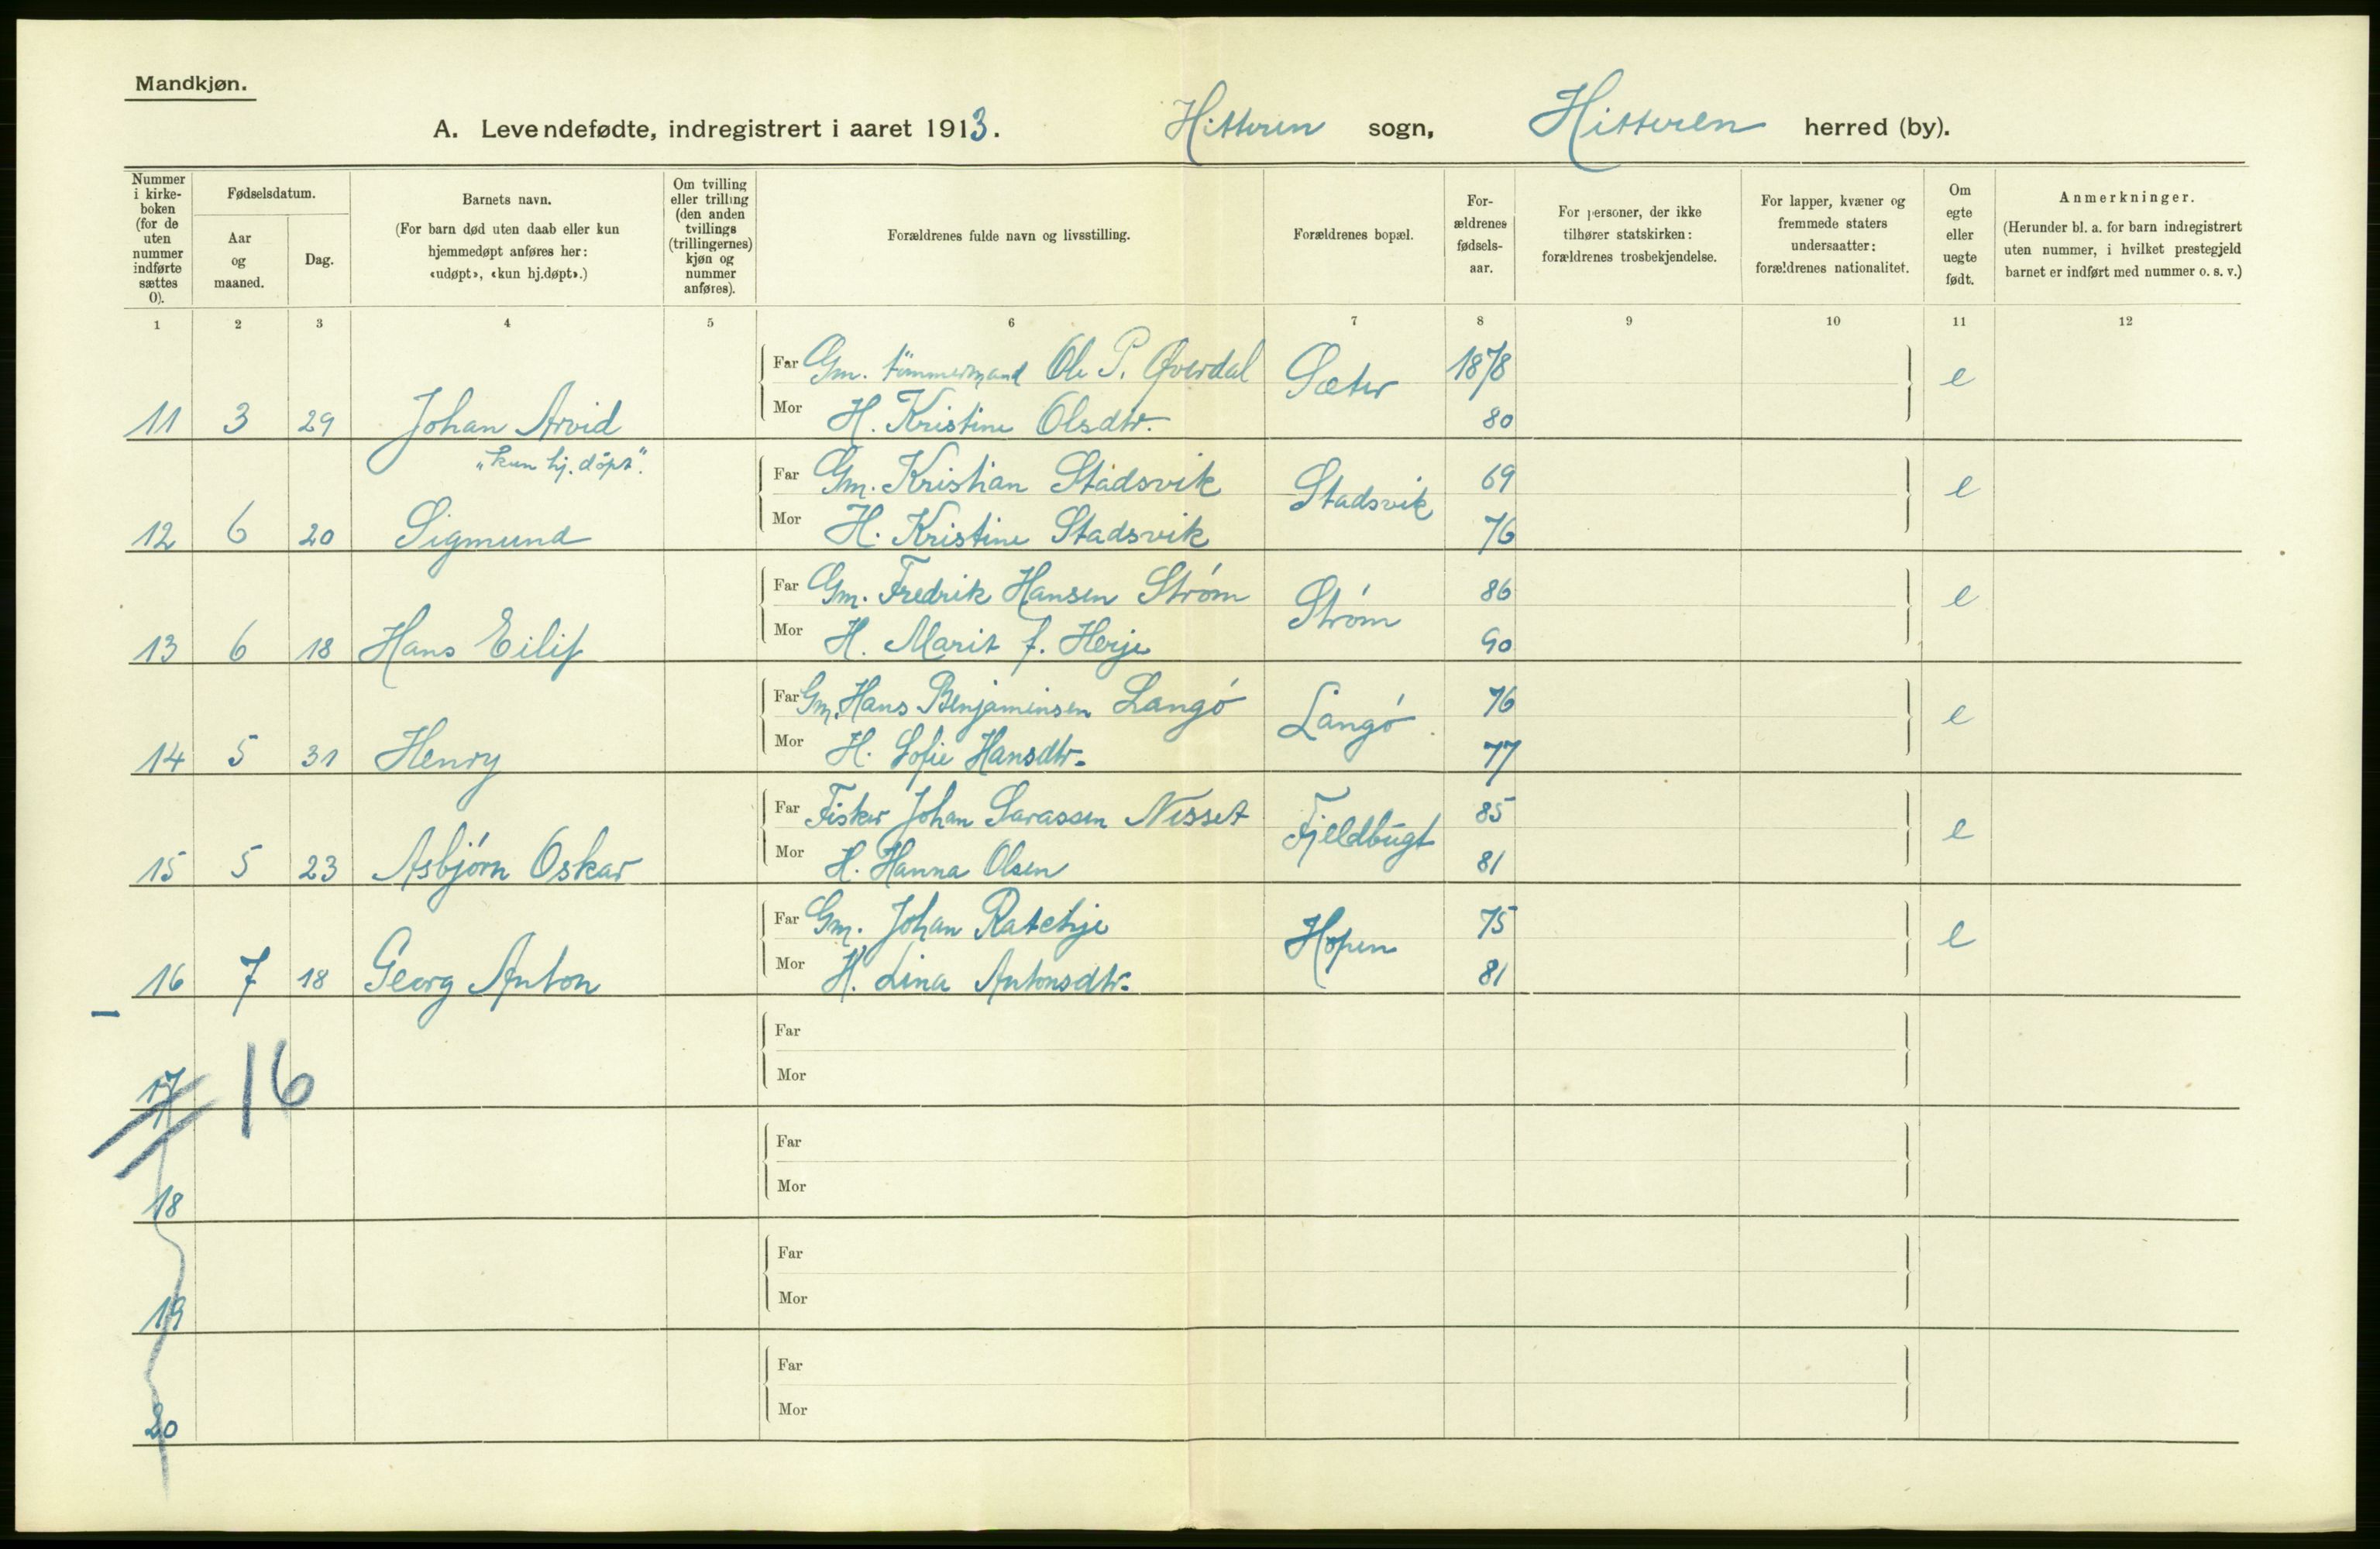 Mandkjøn.
A. Levendefødte, indregistrert i aaret 1913. Hitteren sogn, Hitteren herred (by).
Nummer i kirke-boken (for de uten nummer indførte sættes 0).
Fødselsdatum.
Aar og maaned.
Dag.
Barnets navn.
(For barn død uten daab eller kun
hjemmedøpt anføres her:
«udøpt», «kun hj.døpt».)
Om tvilling
eller trilling
(den anden
tvillings
(trillingernes)
kjøn og
nummer
anføres).
Forældrenes fulde navn og livsstilling.
Forældrenes bopæl.
For-
ældrenes
fødsels-
aar.
For personer, der ikke
tilhører statskirken:
forældrenes trosbekjendelse.
For lapper, kvæner og
fremmede staters
undersaatter:
forældrenes nationalitet.
Om
egte
eller
uegte
født.
Anmerkninger.
(Herunder bl. a. for barn indregistrert
uten nummer, i hvilket prestegjeld
barnet er indført med nummer o. s. v.)
1 2 3 4 5 6 7 8 9 10 11 12
Far Gm. tømmermand Ole P. Øverdal Sæter 1878 e
11 3 29 Johan Arvid Mor H. Kristine Olsdtr. 80
"kun hj. döpt".
Far Gm. Kristian Stadsvik Stadsvik 69 e
12 6 20 Sigmund Mor H. Kristine Stadsvik 76
Far Gm. Fredrik Hansen Strøm Strøm 86 e
13 6 18 Hans Eilif Mor H. Marit f. Herje 90
Far Gm. Hans Benjaminsen Langø Langø 76 e
14 5 31 Henry Mor H. Sofie Hansdtr. 77
Far Fisker Johan Sarassen Nesset Fjeldbugt 85 e
15 5 23 Asbjørn Oskar Mor H. Hanna Olsen 81
Far Gm. Johan Hopen 75 e
16 7 18 Georg Anton Mor H. Lina Antonsdtr. 81
Far
17 16 Mor
Far
18 Mor
Far
19 Mor
Far
20 Mor